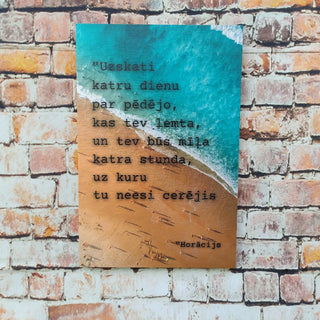 "Uzskati
katru dienu
par pēdējo,
kas tev lemta,
un tev būs mīļa
katra stunda,
uz kuru
tu neesi cerējis
"Horācijs